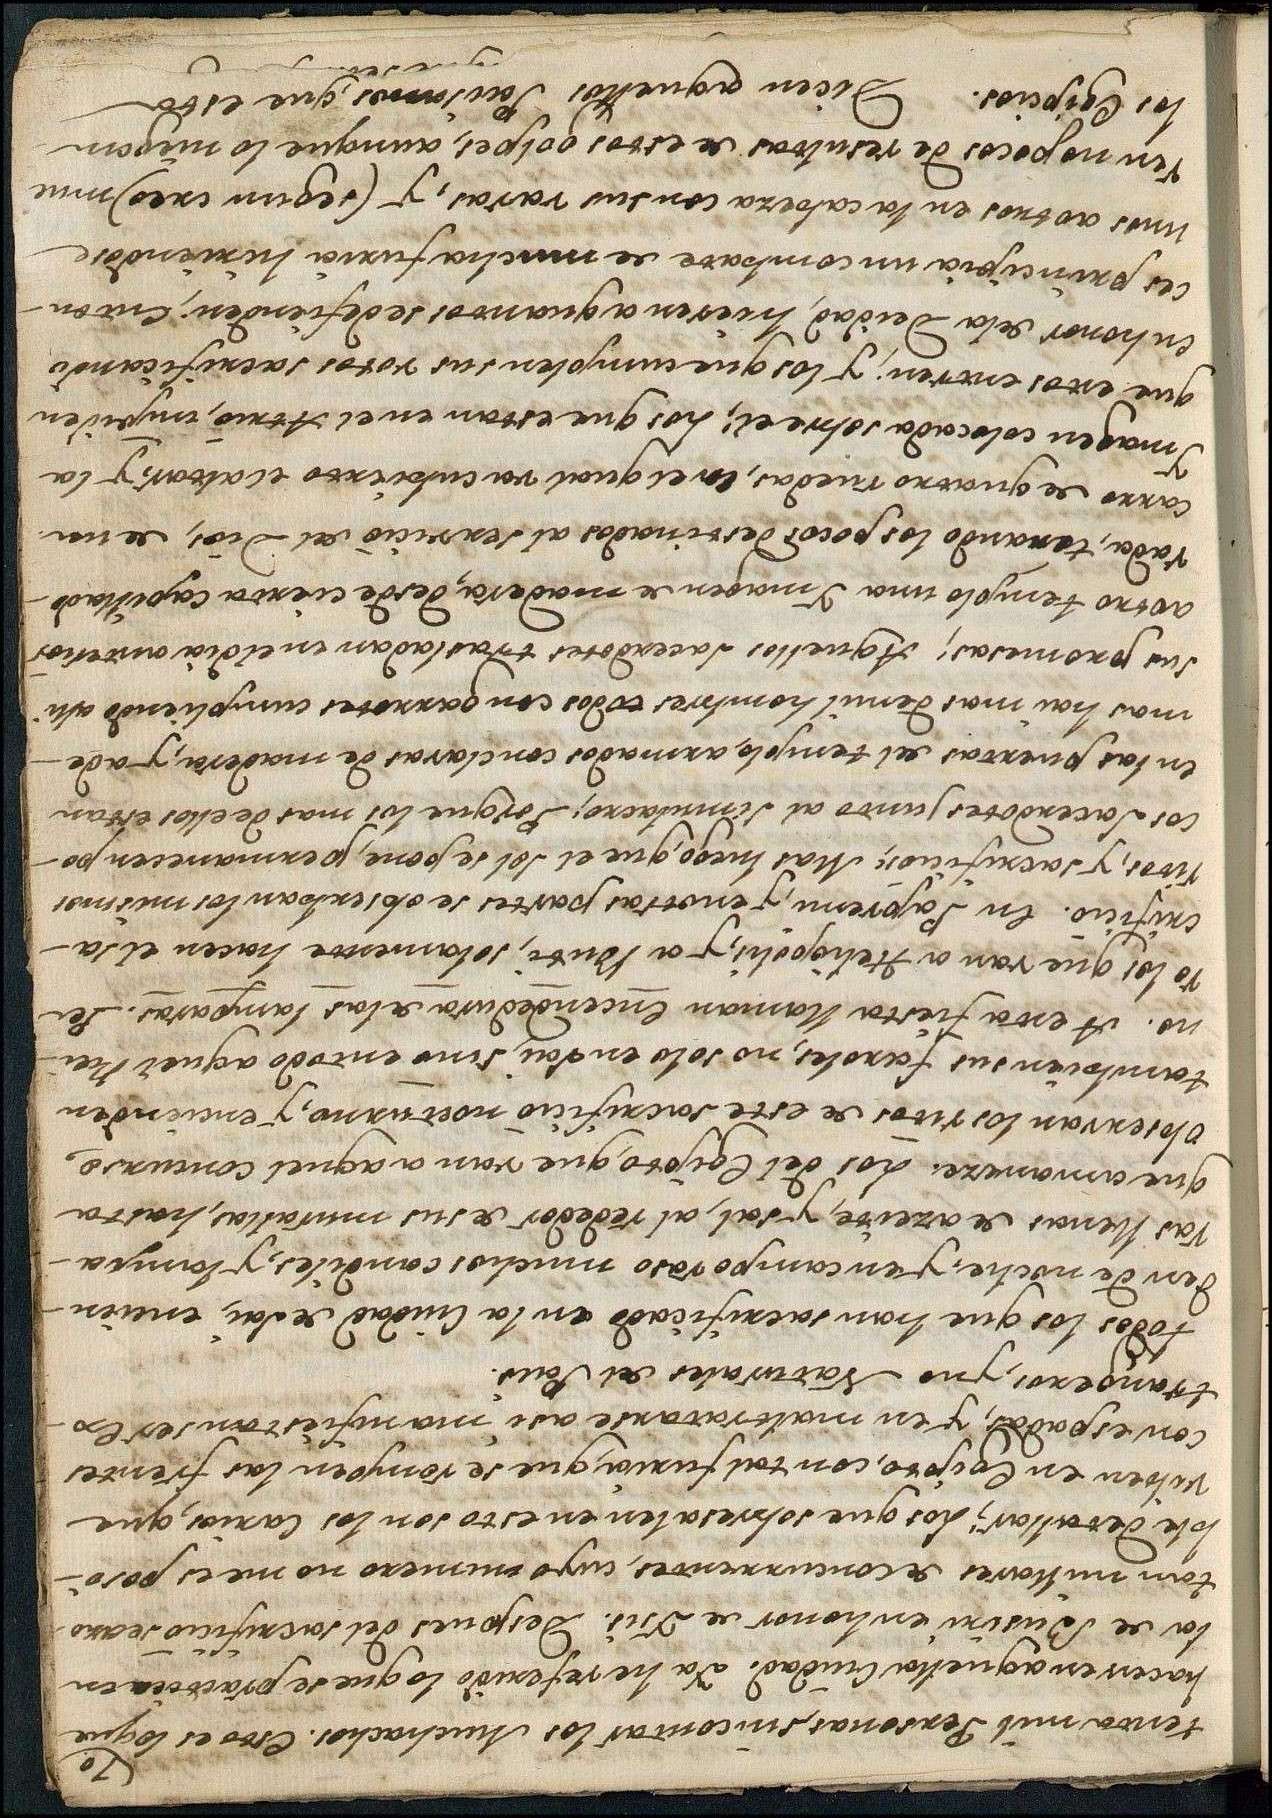 70
tenta mil Personas, sin contar los Muchachos. Esto es lo que
hacen en aquella Ciudad. Ya he referido lo que se practica en
la de Busiri en honor de Isis. Despues del sacrificio se azo-
tan millares de concurrentes, cuyo numero no me es posi-
ble detallar; Los que sobresalen en esto son los Carios, que
viven en Egipto, con tal furia, que se rompen las frentes
con espadas, y en maltratarse asi manifiestan ser Ex-
trangeros, y no Naturales del Pais.
todos los que han sacrificado en la Ciudad de Sai, encien-
den de noche, y en campo raso muchos candiles, y lampa-
ras llenas de azeite, y sal, al rededor de sus murallas, hasta
que amaneze. Los del Egipto, que van a aquel concurso,
observan los ritos de este sacrificio nocturno, y encienden
tambien sus faroles, no solo en Sai, sino en todo aquel Rei-
no. A esta fiesta llaman Encendedura de las lamparas. Pe-
ro los que van a Heliopoli, y a Buti, solamente hacen el sa-
crificio. En Papremi, y en otras partes se observan los mismos
ritos, y sacrificios; Mas luego, que el sol se pone, permanecen po-
cos Sacerdotes junto al Simulacro; Porque los mas de ellos estan
en las puertas del templo armados con clavas de madera, y ade-
mas hai mas de mil hombres todos con garrotes cumpliendo alli
sus promesas; Aquellos Sacerdotes trasladan en el dia anterior
a otro templo una Imagen de madera, desde cierta capilla do-
rada, tirando los pocos destinados al servicio del Dios, de un
carro de quatro ruedas, en el qual va cubierto el altar, y la
Imagen colocada sobre el; Los que estan en el Atrio, impiden
que estos entren; y los que cumplen sus votos sacrificando
en honor de la Deidad, hieren a quantos se defienden; Enton-
ces principia un combate de mucha furia hiriendose
unos a otros en la cabeza con sus varas, y, (segun creo) mue
ren no pocos de resultas de estos golpes, aunque lo niegan
los Egipcios. Dicen aquellos Paisanos, que esta